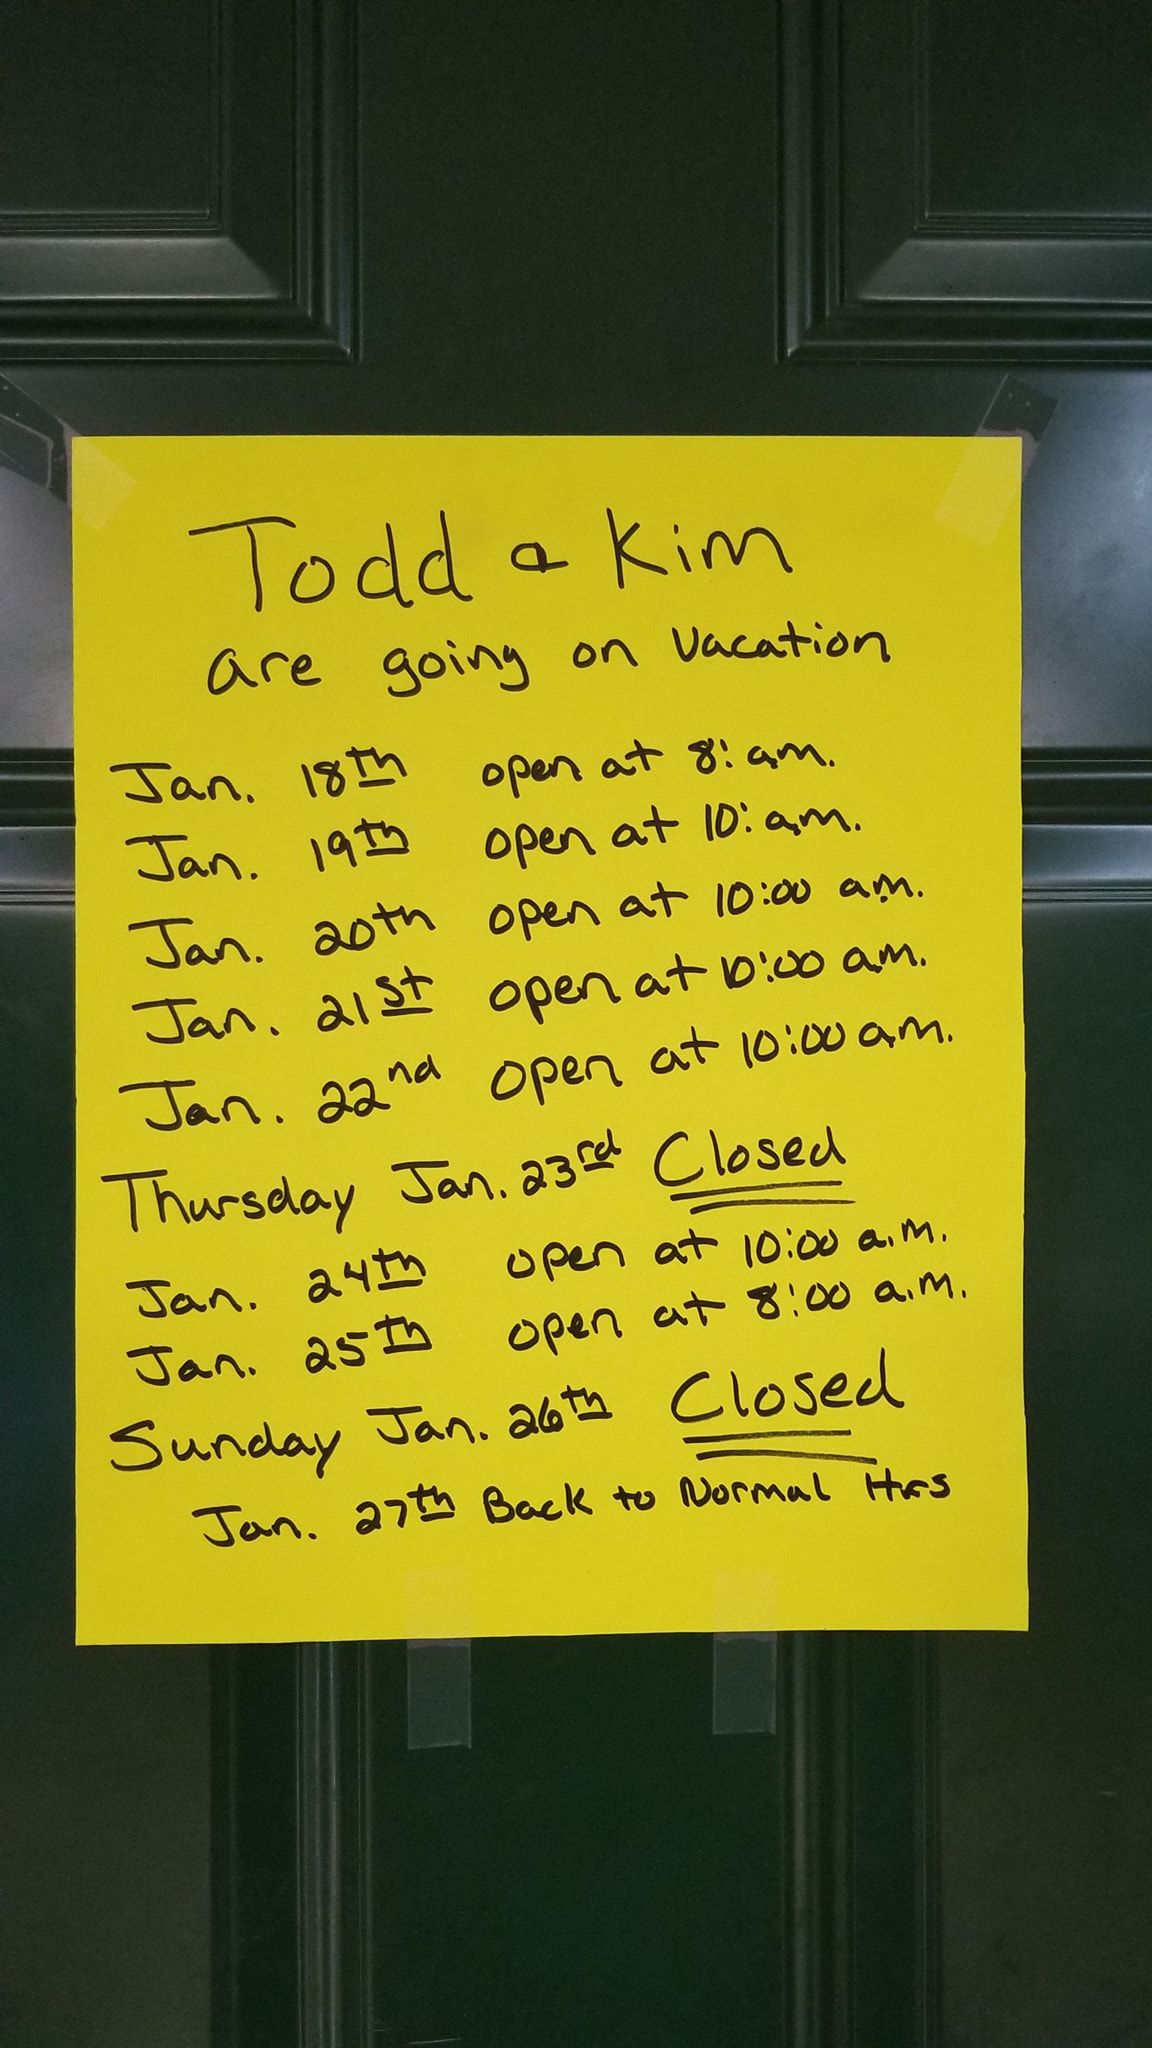 Todd & Kim
are going on vacation
Jan. 18th open at 8: a.m.
Jan. 19th open at 10: a.m.
Jan. 20th open at 10:00 a.m.
Jan. 21st open at 10:00 a.m.
Jan. 22nd open at 10:00 a.m.
Thursday Jan. 23rd Closed
Jan. 24th open at 10:00 a.m.
Jan. 25th open at 8:00 a.m.
Sunday Jan. 26th Closed
Jan. 27th Back to Normal Hrs